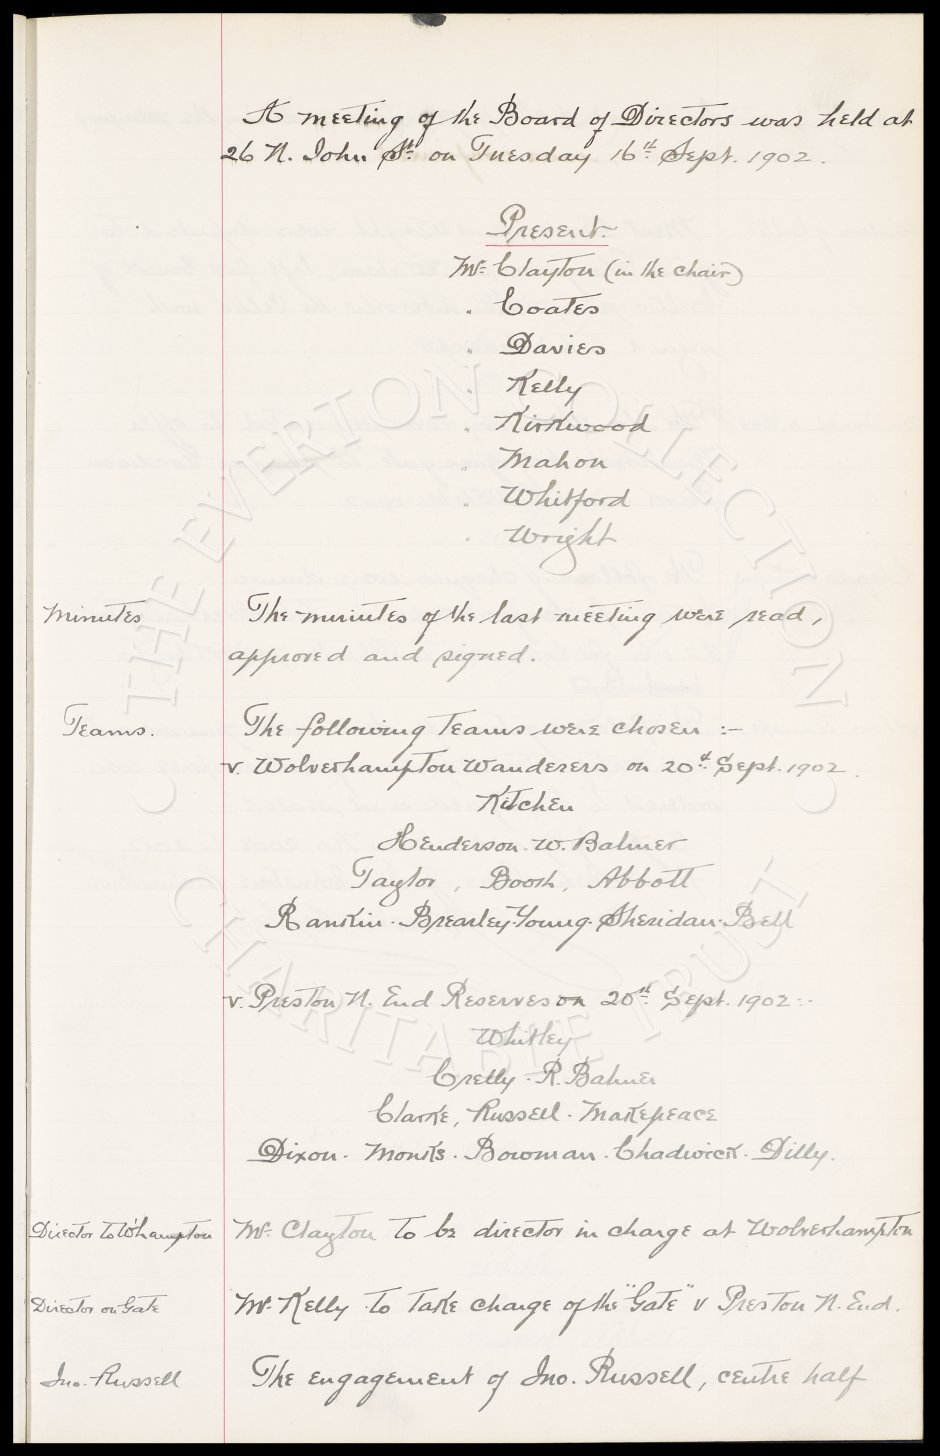 A meeting of the Board of Directors was held at
26 N. John St. on Tuesday 16th Sept. 1902.
Present.
Mr. Clayton (in the chair)
" Coates
" Davies
" Kelly
" Kirkwood
" Mahon
" Whitford
" Wright
Minutes The minutes of the last meeting were read,
approved and signed.
Teams. The following teams were chosen :-
v. Wolverhampton Wanderers on 20th Sept. 1902.
Kitchen
Henderson. W. Balmer
Taylor, Booth, Abbott
Rankin. Brearley. Young. Sheridan. Bell
v. Preston N. End Reserves on 20th Sept. 1902 :-
Whitley
Crelly. R. Balmer
Clarke, Russell. Makepeace
Dixon. Monks. Bowman. Chadwick. Dilly.
Director to W'hampton Mr. Clayton to be director in charge at Wolverhampton
Director on Gate Mr. Kelly to take charge of the "Gate" v Preston N. End.
Jno. Russell The engagement of Jno. Russell, centre half
THE EVERTON COLLECTION
CHARITABLE TRUST